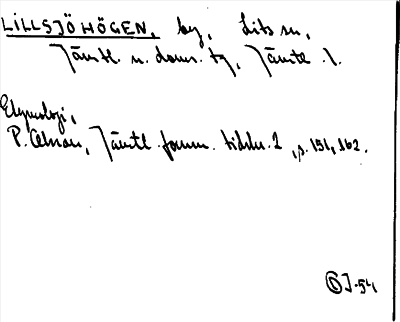 LILLSJÖHÖGEN, by, Lits sn,
Jämtl. n. doms. tg, Jämtl. l.
Etymologi,
P. Olsson, Jämtl. fornm. tidskr. 2, s. 151, 162.
ÖJ-54